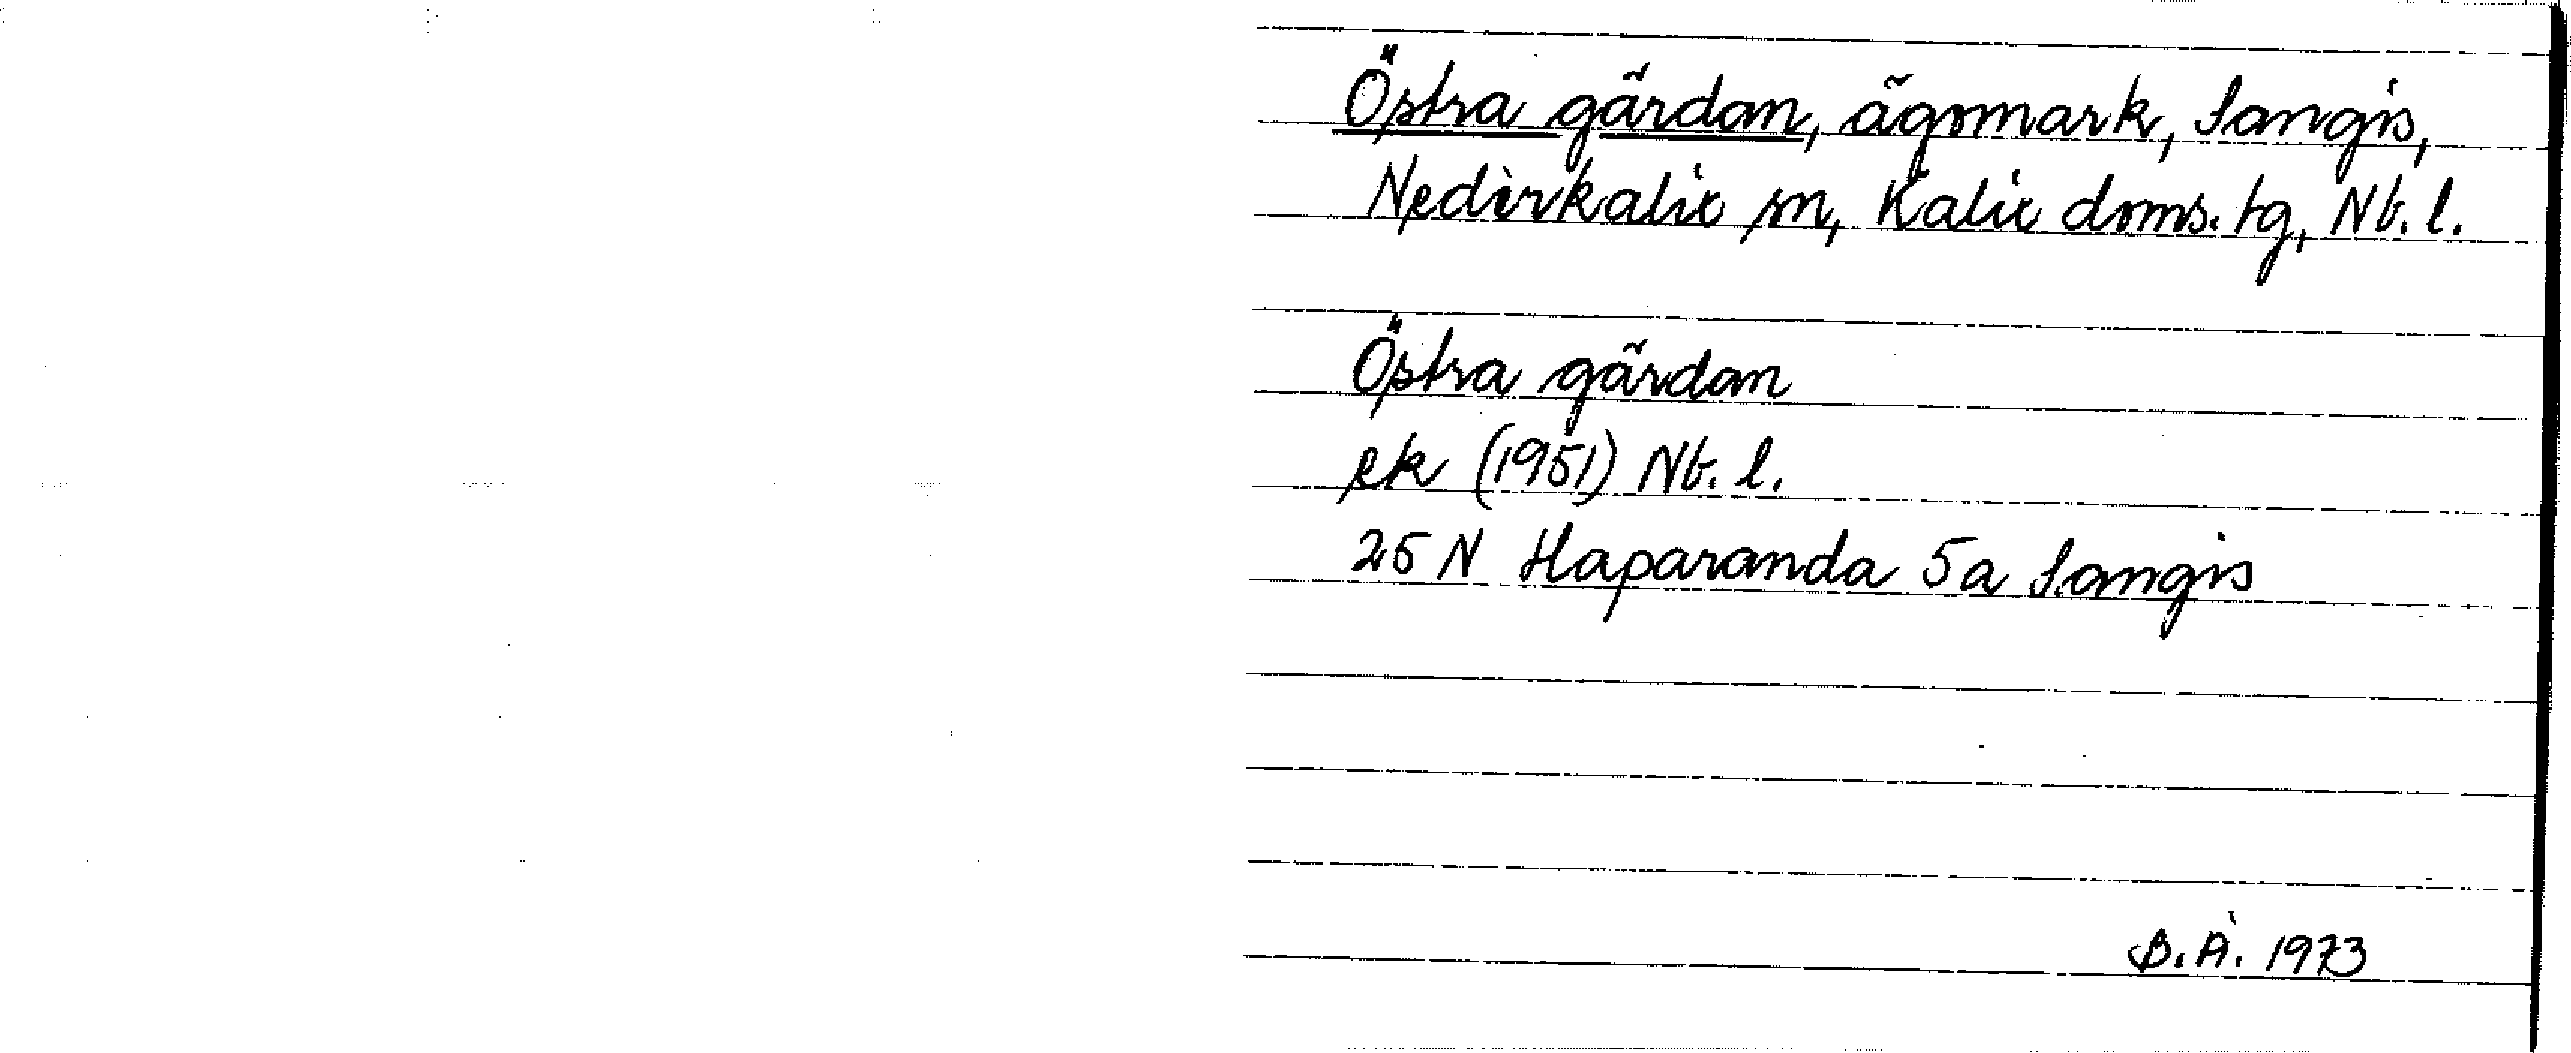 Östra gärdan, ägomark, Sangis,
Nederkalix sn, Kalix doms. tg, Nb. l.
Östra gärdan
ek (1951) Nb. l.
25 N Haparanda 5a Sangis
B. Å. 1973